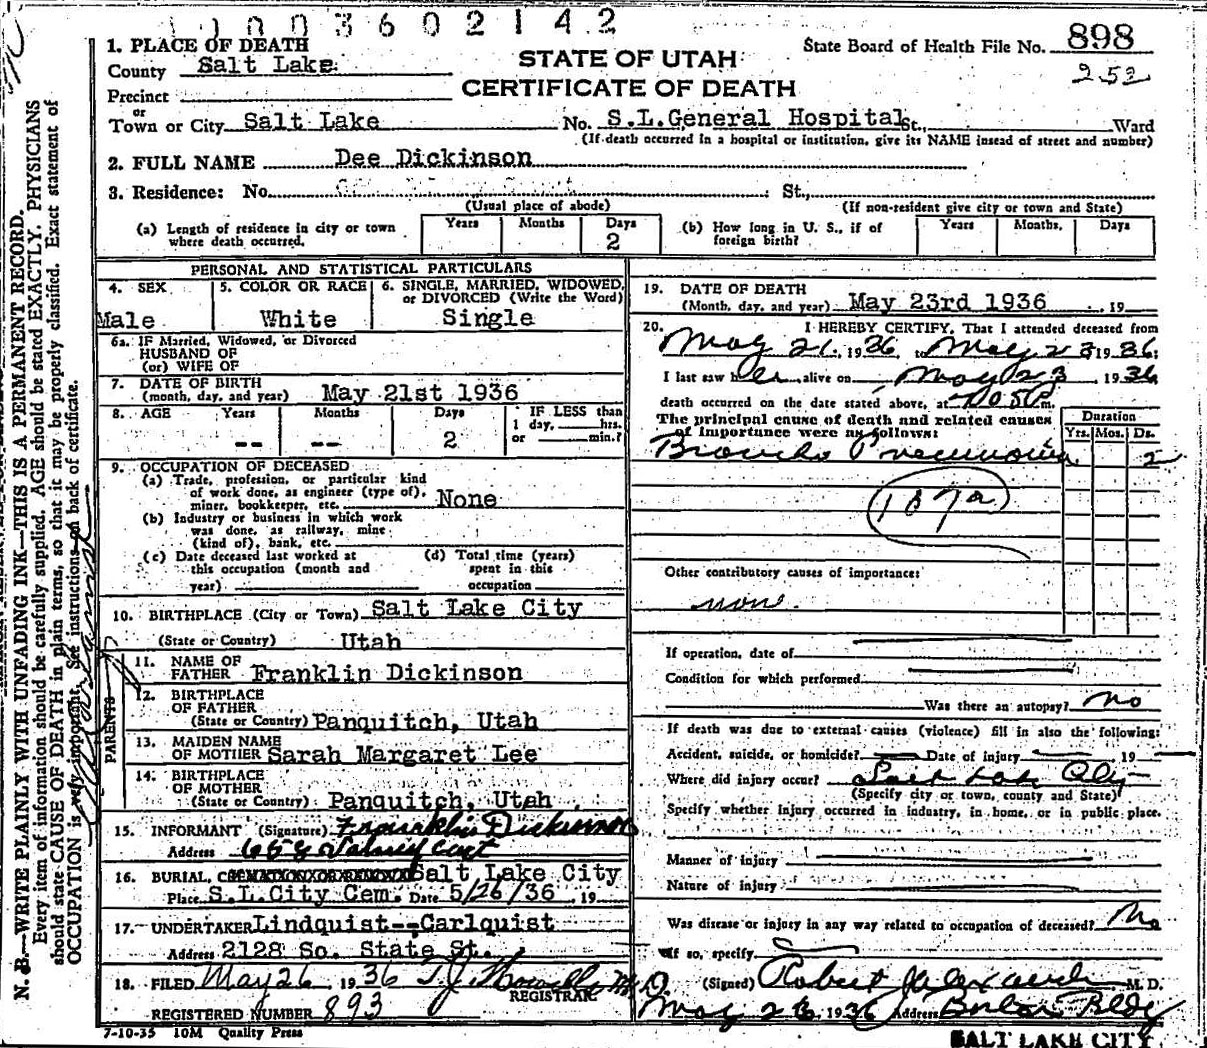 1003602142
State Board of Health File No. 898
252
STATE OF UTAH
CERTIFICATE OF DEATH
1. PLACE OF DEATH
County Salt Lake
Precinct
or
Town or City Salt Lake No. S.L.General Hospital St., Ward
(If death occurred in a hospital or institution, give its NAME insead of street and number)
2. FULL NAME Dee Dickinson
3. Residence: No. St,
(Usual place of abode) (If non-resident give city or town and State)
(a) Length of residence in city or town where death occurred. Years Months Days 2
(b) How long in U. S., if of foreign birth? Years Months, Days
PERSONAL AND STATISTICAL PARTICULARS
4. SEX Male
5. COLOR OR RACE White
6. SINGLE, MARRIED, WIDOWED, or DIVORCED (Write the Word) Single
6a. IF Married, Widowed, or Divorced
HUSBAND OF
(or) WIFE OF
7. DATE OF BIRTH
(month, day, and year) May 21st 1936
8. AGE Years -- Months -- Days 2
IF LESS than
1 day, hrs.
or min.?
9. OCCUPATION OF DECEASED
(a) Trade, profession, or particular kind
of work done, as engineer (type of),
miner, bookkeeper, etc. None
(b) Industry or business in which work
was done, as railway, mine
(kind of), bank, etc.
(c) Date deceased last worked at
this occupation (month and
year)
(d) Total time (years)
spent in this
occupation
10. BIRTHPLACE (City or Town) Salt Lake City
(State or Country) Utah
PARENTS
11. NAME OF
FATHER Franklin Dickinson
12. BIRTHPLACE
OF FATHER
(State or Country) Panquitch, Utah
13. MAIDEN NAME
OF MOTHER Sarah Margaret Lee
14. BIRTHPLACE
OF MOTHER
(State or Country) Panquitch, Utah
15. INFORMANT (Signature) Franklin Dickinson
Address 658
16. BURIAL, Salt Lake City
Place S.L.City Cem. Date 5/26/36, 19
17. UNDERTAKER Lindquist--Carlquist
Address 2128 So. State St.
18. FILED May 26, 1936 T.J. Howells M.D.
REGISTRAR
REGISTERED NUMBER 893
7-10-35 10M Quality Press
19. DATE OF DEATH
(Month, day, and year) May 23rd 1936, 19
20. I HEREBY CERTIFY, That I attended deceased from
May 21, 1936, to May 23 1936;
I last saw h alive on May 23, 1936
death occurred on the date stated above, at m.
The principal cause of death and related causes
of importance were as follows:
Duration
Yrs. Mos. Ds.
Broncho Pneumonia 2
107a
Other contributory causes of importance:
none.
If operation, date of
Condition for which performed
Was there an autopsy? No
If death was due to external causes (violence) fill in also the following:
Accident, suicide, or homicide? Date of injury 19
Where did injury occur? Salt Lake City
(Specify city or town, county and State)
Specify whether injury occurred in industry, in home, or in public place.
Manner of injury
Nature of injury
Was disease or injury in any way related to occupation of deceased? No
If so, specify
(Signed) Robert M. D.
May 26, 1936 Address Boston Bldg
SALT LAKE CITY
N. B.—WRITE PLAINLY WITH UNFADING INK—THIS IS A PERMANENT RECORD.
Every item of information should be carefully supplied. AGE should be stated EXACTLY. PHYSICIANS
should state CAUSE OF DEATH in plain terms, so that it may be properly classified. Exact statement of
OCCUPATION is very important. See instructions on back of certificate.